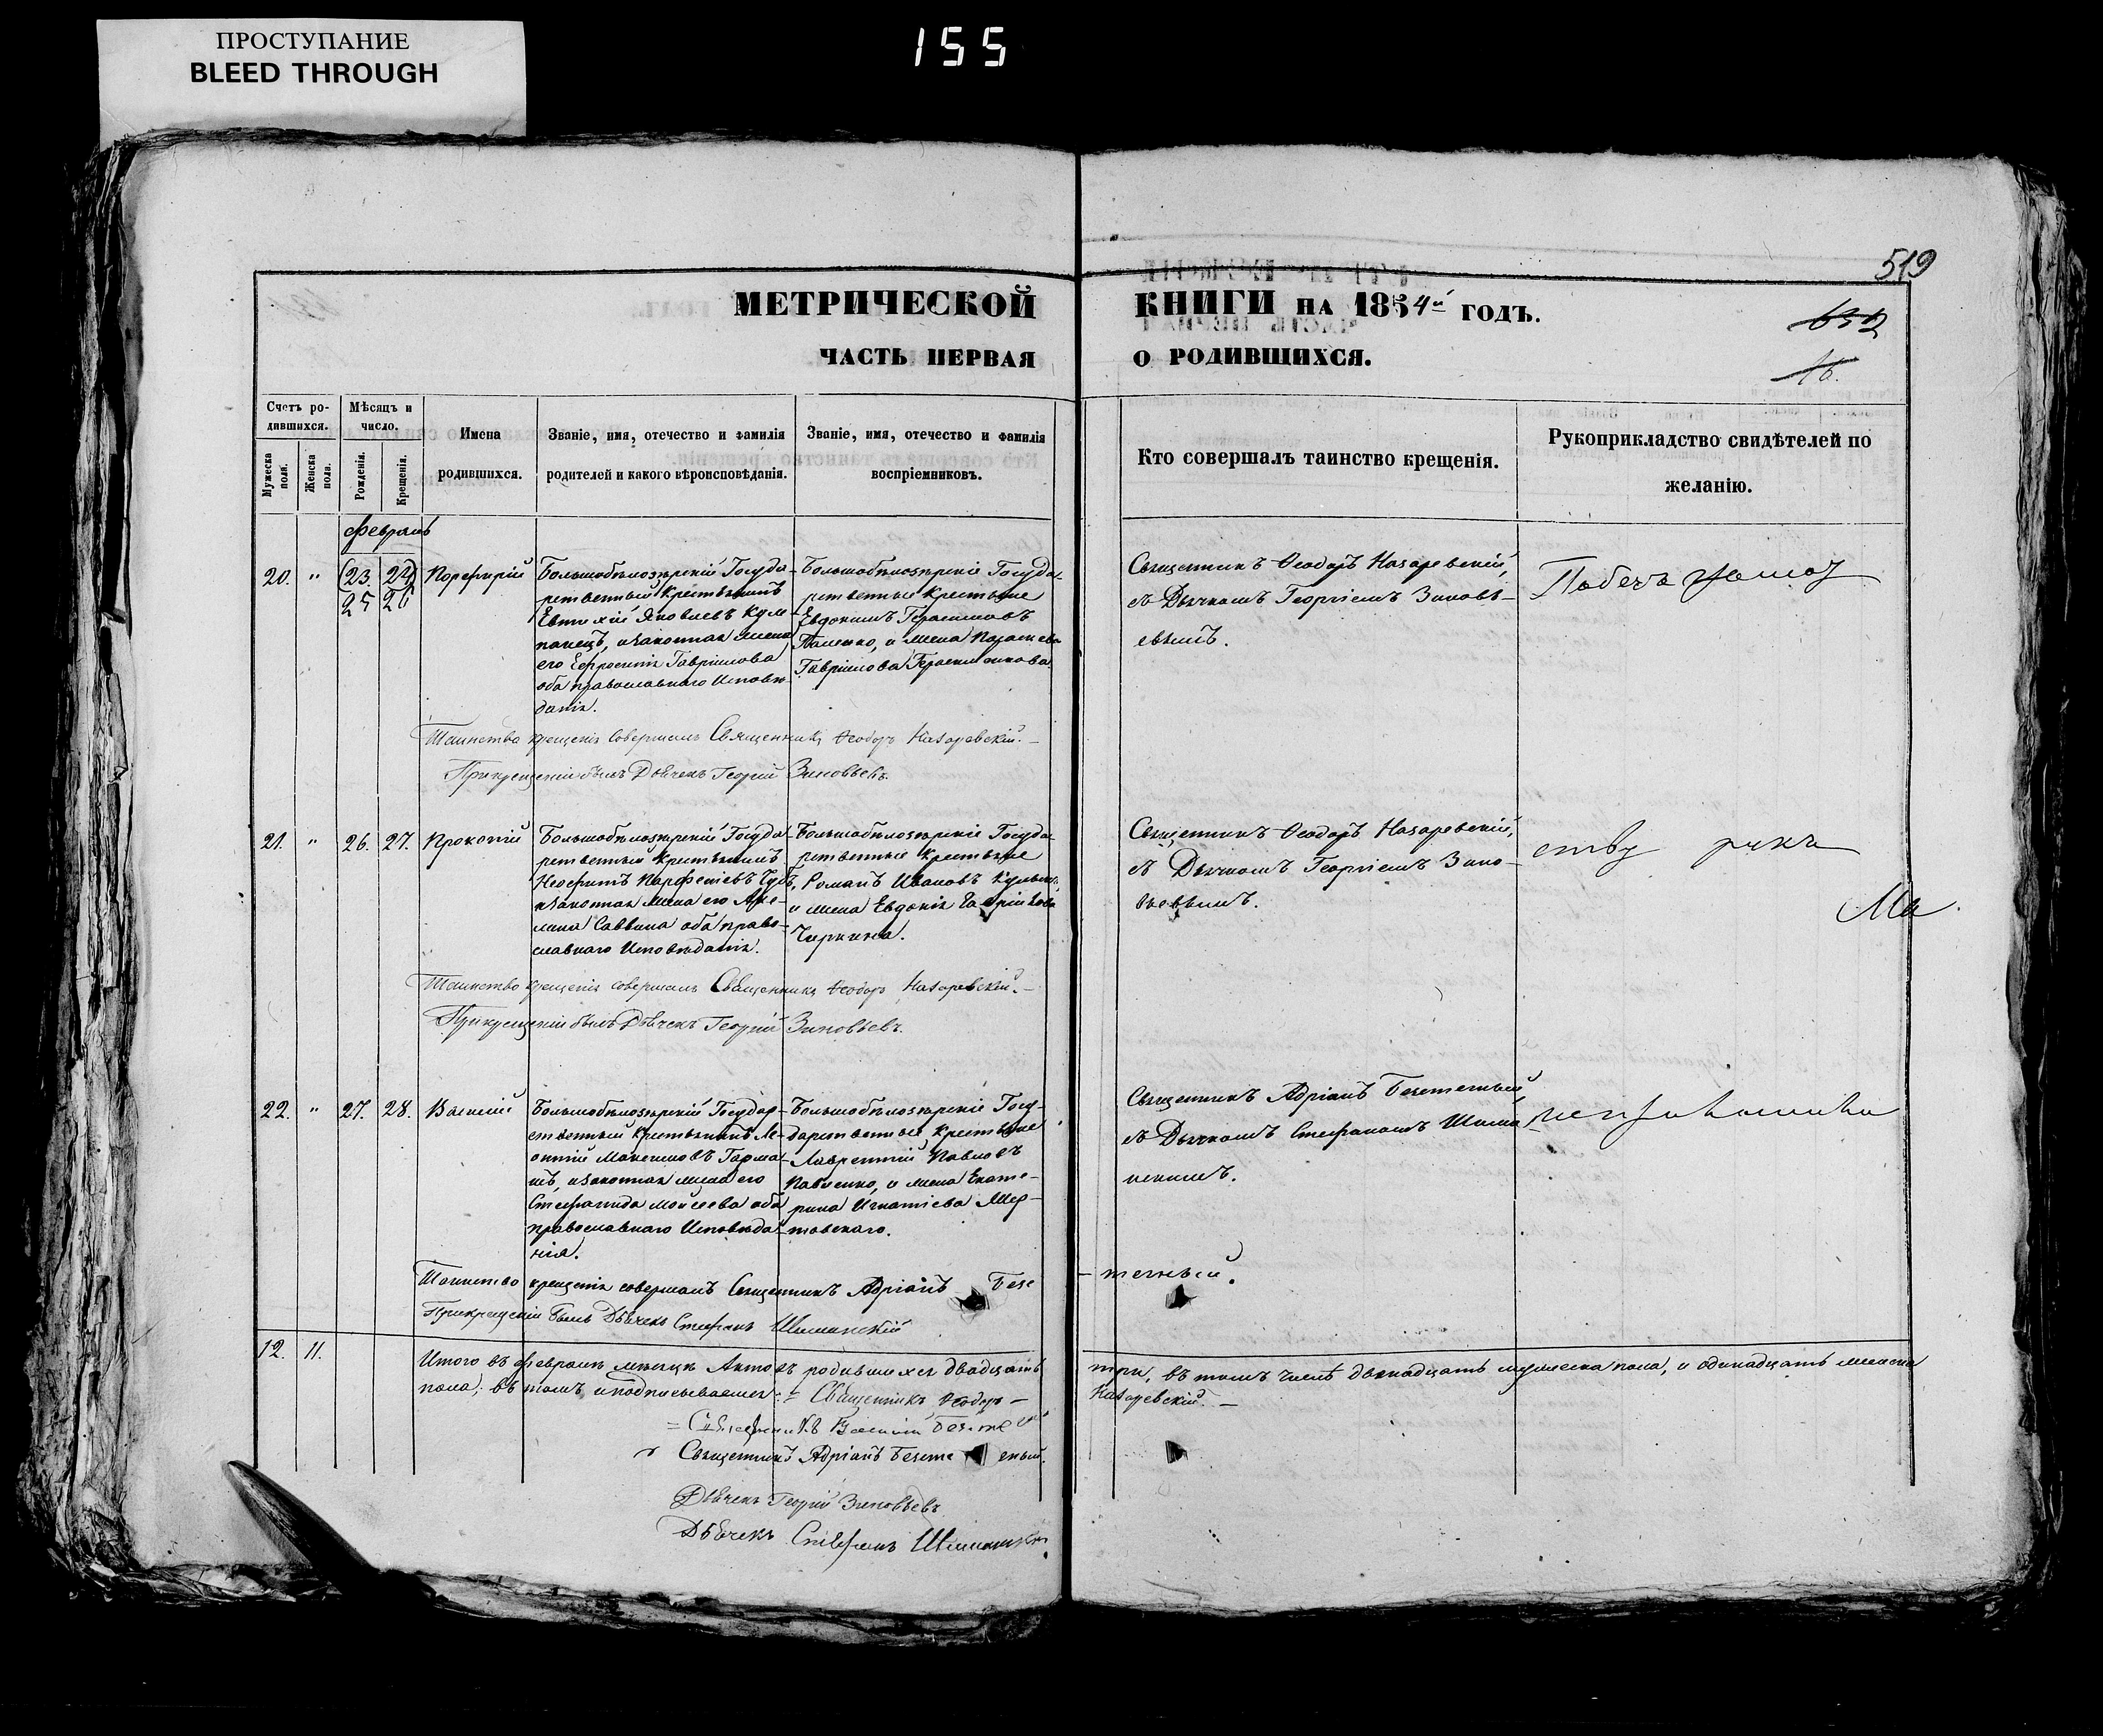 ПРОСТУПАНИЕ
BLEED THROUGH
155
519
МЕТРИЧЕСКОЙ КНИГИ НА 1854й ГОДЪ.
652
16.
ЧАСТЬ ПЕРВАЯ О РОДИВШИХСЯ.
Счетъ ро-
дившихся.
Мужеска пола.
Женска пола.
Мѣсяцъ и
число.
Рожденія.
Крещенія.
Имена
родившихся.
Званіе, имя, отечество и фамилія
родителей и какого вѣроисповѣданія.
Званіе, имя, отечество и фамилія
воспріемниковъ.
Кто совершалъ таинство крещенія.
Рукоприкладство свидѣтелей по
желанію.
Февраль
20. " 23. 24
25 26
Порфирій
Большобѣлозѣрскій Госуда-
рственный Крестьянинъ
Евтихій Яковлевъ Кум-
панецъ, изаконная жена
его Ефросинія Гаврiилова
оба православнаго Исповѣ-
данія.
Большобѣлозѣрскіе Госуда-
рственные Крестьяне
Евдокимъ Герасимовъ
и жена
Гаврiилова
Священникъ Ѳеодоръ Назаревскій,
съ Дьячкомъ Георгіемъ Зиновь-
евымъ.
Таинство крещенія совершалъ Священникъ Ѳеодоръ Назаревскій.
При крещеніи былъ Дьячекъ Георгій Зиновьевъ.
21. " 26. 27. Прокопій
Большобѣлозѣрскій Госуда-
рственный Крестьянинъ
Неофитъ Парфеніевъ
изаконная жена его Аки-
лина Саввина оба право-
славнаго Исповѣданія.
Большобѣлозѣрскіе Госуда-
рственные Крестьяне
Романъ Ивановъ
и жена Евдокія
Чиркина.
Священникъ Ѳеодоръ Назаревскій,
съ Дьячкомъ Георгіемъ Зино-
вьевымъ.
ству руки
Ма
Таинство крещенія совершалъ Священникъ Ѳеодоръ Назаревскій.
При крещеніи былъ Дьячекъ Георгій Зиновьевъ.
22. " 27. 28. Василій
Большобѣлозѣрскій Государ-
ственный Крестьянинъ Ле-
онтій Максимовъ Гарма-
шъ, изаконная жена его
Стефанида Моисеева оба
православнаго Исповѣда-
нія.
Большобѣлозѣрскіе Госу-
дарственные Крестьяне
Лаврентій Павловъ
Павленко, и жена Екате-
рина Игнатіева Мер-
товскаго.
Священникъ Адріанъ Безтечный
съ Дьячкомъ Стефаномъ Шима-
нскимъ.
Таинство крещенія совершалъ Священникъ Адріанъ Безе-
течный.
При крещеніи былъ Дьячекъ Стефанъ Шиманскій
12. 11. Итого въ февралѣ мѣсяцѣ Актовъ родившихся двадцать три, въ томъ числѣ двѣнадцать мужеска пола, и одинадцать женска
пола; въ томъ и подписываемся: Священникъ Ѳеодоръ Назаревскій.
Священникъ Василій
Священникъ Адріанъ Безтечный.
Дьячекъ Георгій Зиновьевъ
Дьячекъ Стефанъ Шиманскій